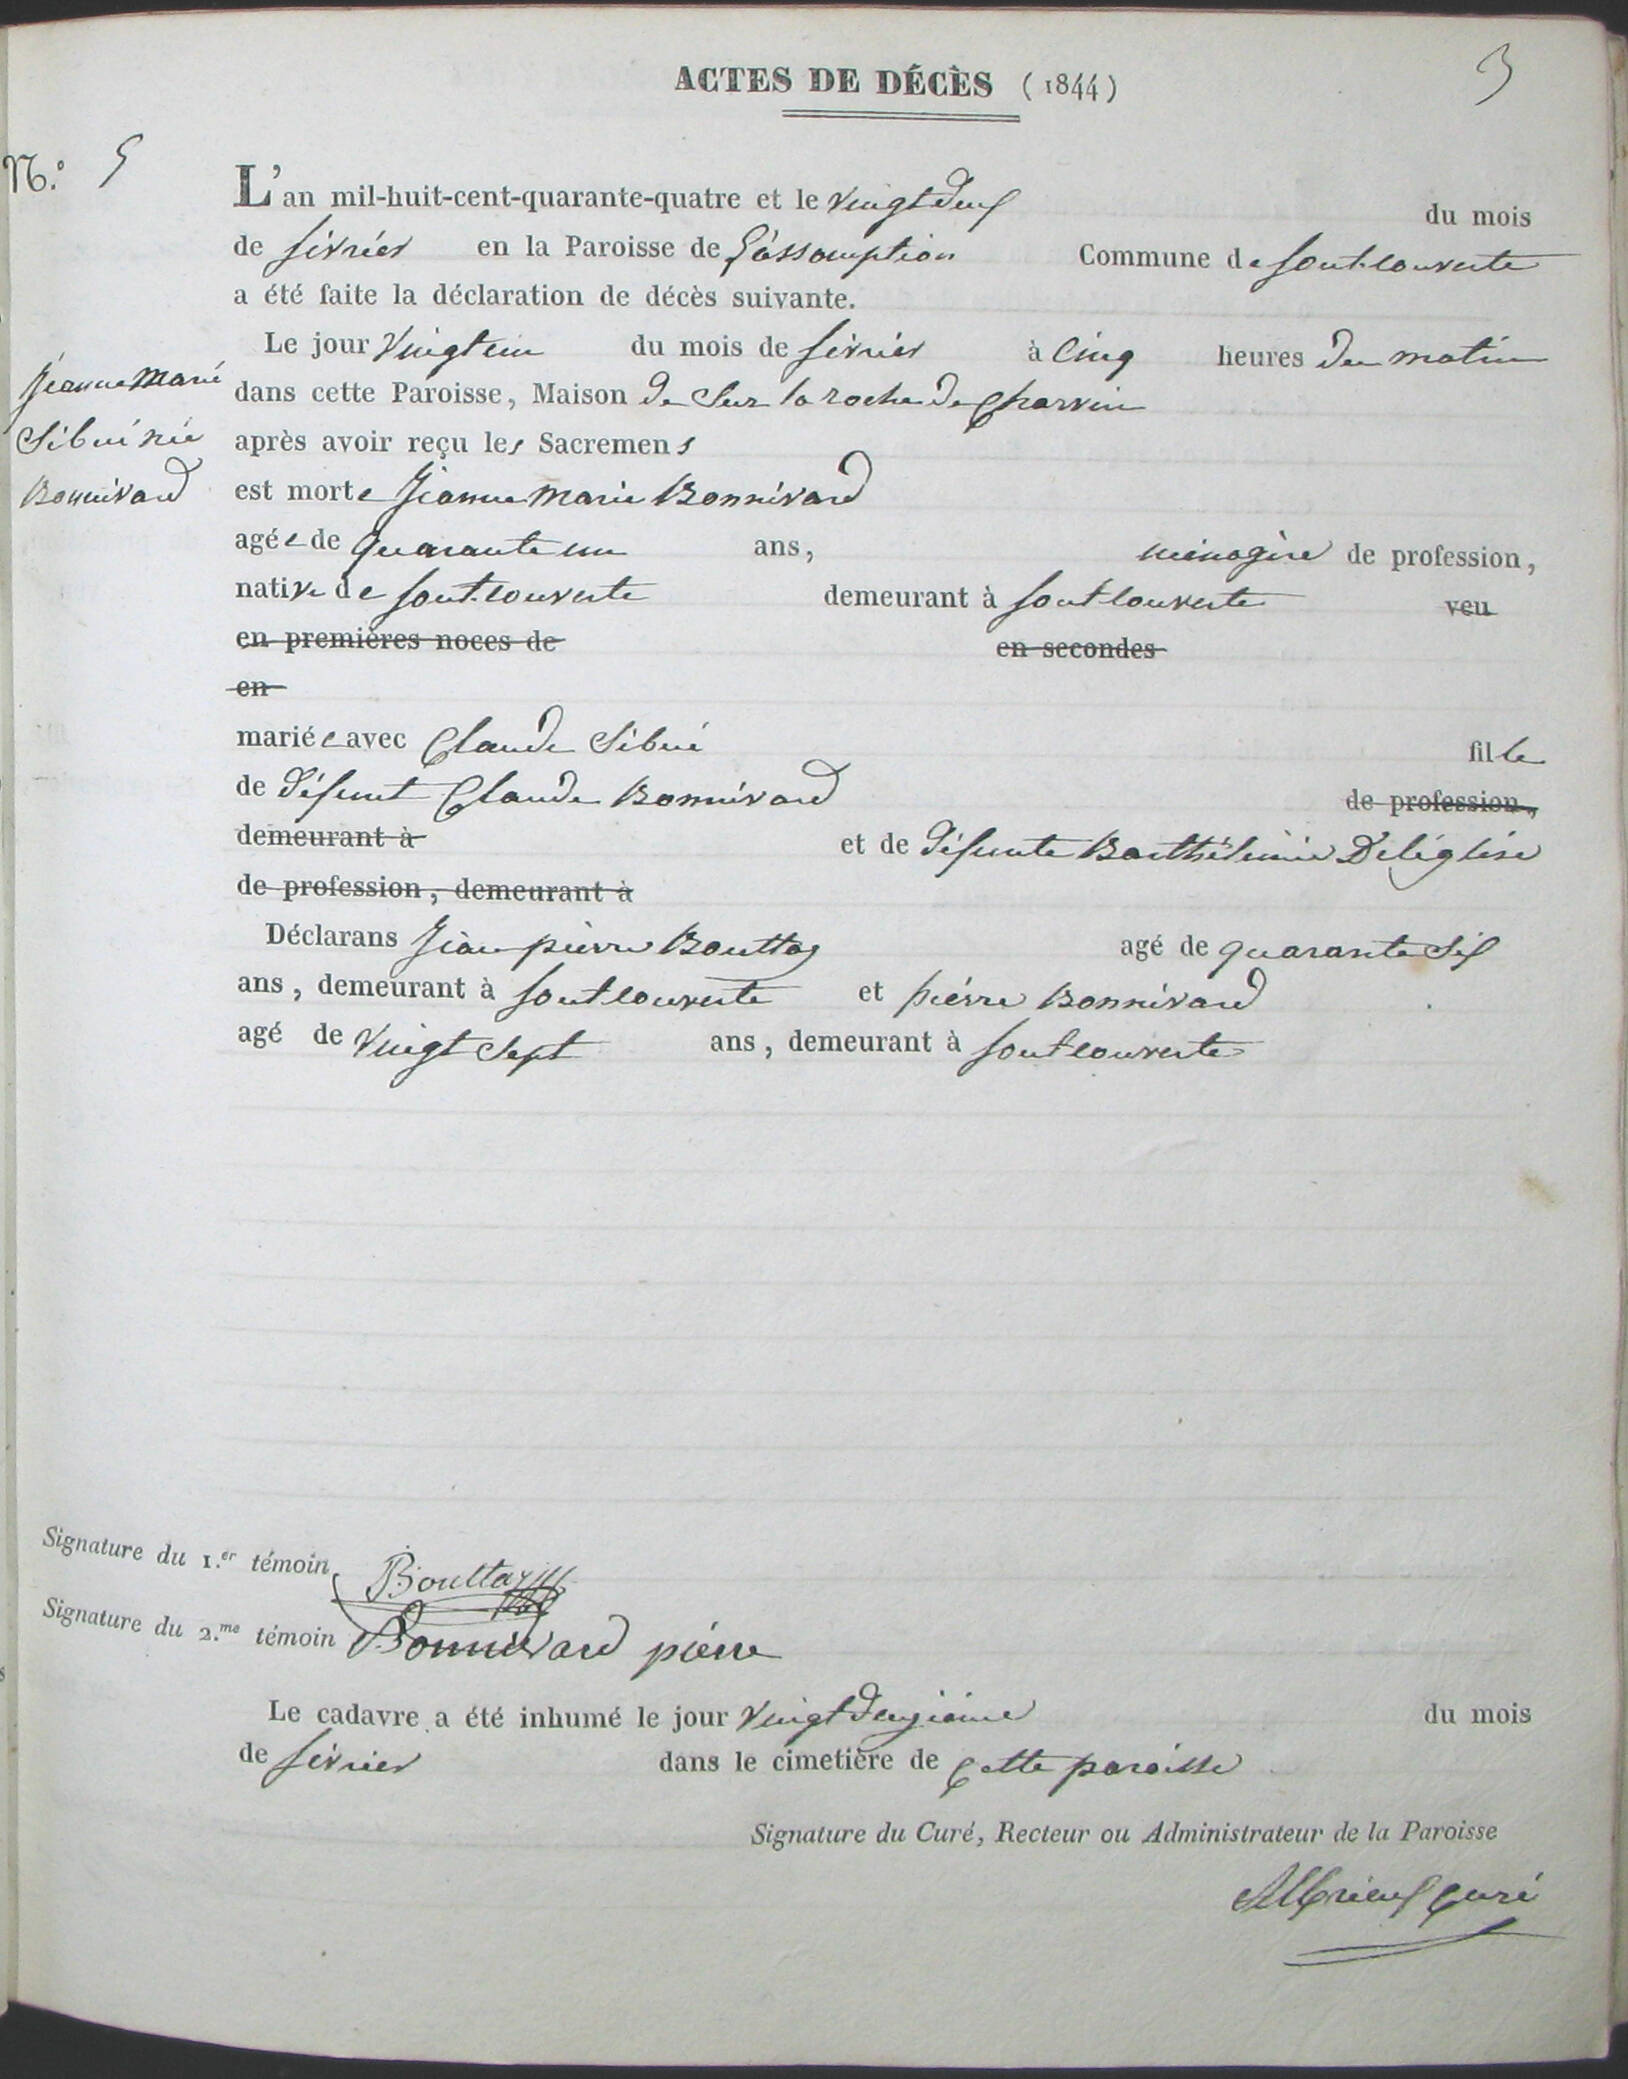 ACTES DE DÉCÈS (1844)
3
N.º 5
L'an mil-huit-cent-quarante-quatre et le vingt deux du mois
de février en la Paroisse de L'assomption Commune de font-couverte
a été faite la déclaration de décès suivante.
Le jour vingt un du mois de février à cinq heures du matin
Jeanne Marie
Sibué née
Bonnivard
dans cette Paroisse, Maison de Sur la roche de Charvin
après avoir reçu les Sacremens
est morte Jeanne Marie Bonnivard
agée de quarante un ans, ménagère de profession,
native de font-couverte demeurant à fontcouverte veu
en premières noces de en secondes
en
mariée avec Claude Sibué fille
de défunt Claude Bonnivard de profession,
demeurant à et de défunte Barthélemie Deléglise
de profession, demeurant à
Déclarans Jean pierre Bouttaz agé de quarante six
ans, demeurant à fontcouverte et pierre Bonnivard
agé de vingt sept ans, demeurant à fontcouverte
Signature du 1.er témoin, Bouttaz
Signature du 2.me témoin Bonnivard pierre
Le cadavre a été inhumé le jour vingt deuxième du mois
de février dans le cimetière de cette paroisse
Signature du Curé, Recteur ou Administrateur de la Paroisse
curé